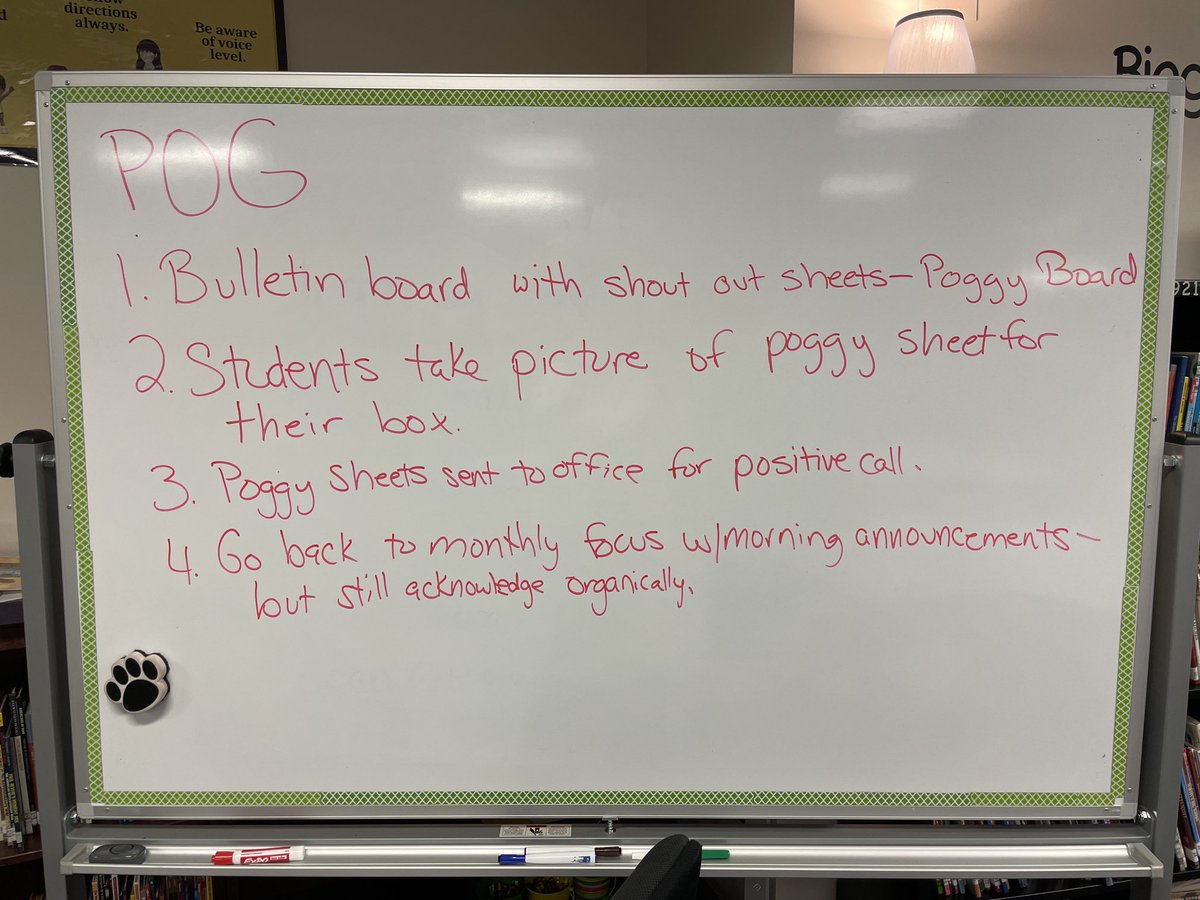 directions
always.
Be aware
of voice
level.
POG
1. Bulletin board with shout out sheets – Poggy Board
2. Students take picture of poggy sheet for
their box.
3. Poggy sheets sent to office for positive call.
4. Go back to monthly focus w/morning announcements –
but still acknowledge organically.
921
EXPO